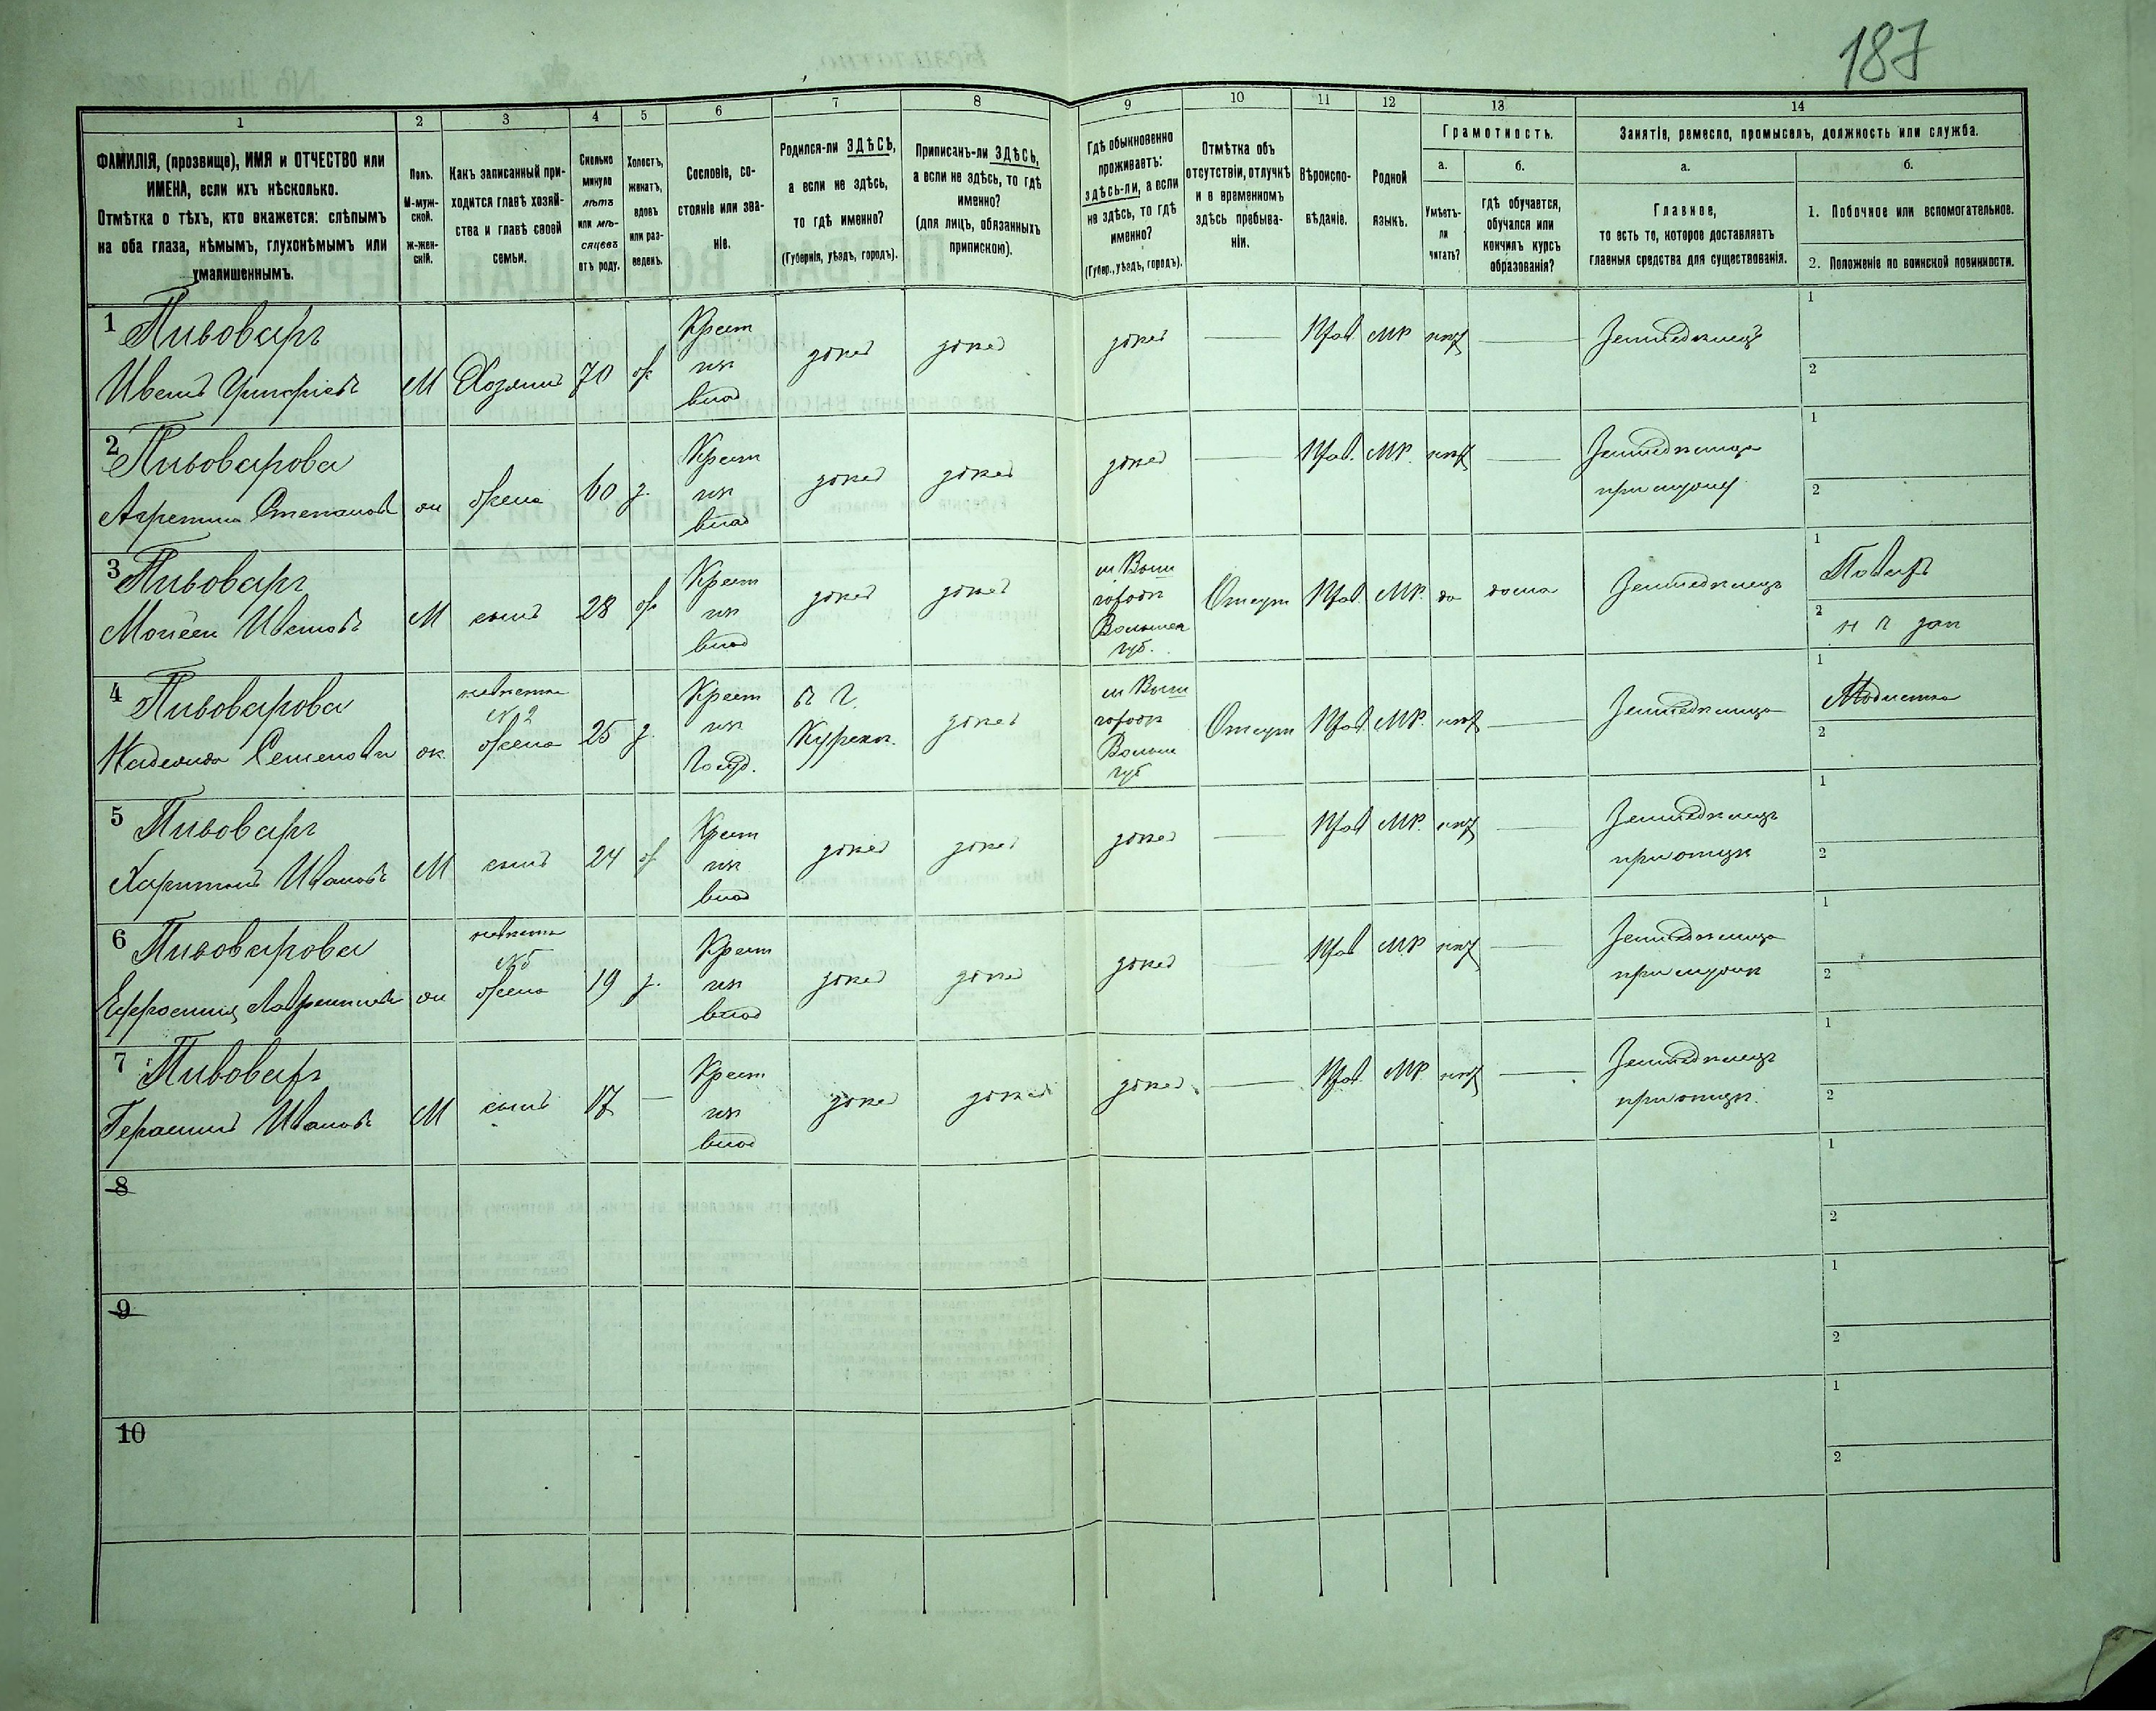 187
1
2
3
4
5
6
7
8
9
10
11
12
13
14
ФАМИЛІЯ, (прозвище), ИМЯ и ОТЧЕСТВО или
ИМЕНА, если ихъ нѣсколько.
Отмѣтка о тѣхъ, кто окажется: слѣпымъ
на оба глаза, нѣмымъ, глухонѣмымъ или
умалишеннымъ.
Полъ.
М-муж-
ской.
Ж-жен-
скій.
Какъ записанный при-
ходится главѣ хозяй-
ства и главѣ своей
семьи.
Сколько
минуло
лѣтъ
или мѣ-
сяцевъ
отъ роду.
Холостъ,
женатъ,
вдовъ
или раз-
веденъ.
Сословіе, со-
стояніе или зва-
ніе.
Родился-ли ЗДѢСЬ,
а если не здѣсь,
то гдѣ именно?
(Губернія, уѣздъ, городъ).
Приписанъ-ли ЗДѢСЬ,
а если не здѣсь, то гдѣ
именно?
(для лицъ, обязанныхъ
припискою).
Гдѣ обыкновенно
проживаетъ:
здѣсь-ли, а если
не здѣсь, то гдѣ
именно?
(Губер., уѣздъ, городъ).
Отмѣтка объ
отсутствіи, отлучкѣ
и в временномъ
здѣсь пребыва-
ніи.
Вѣроиспо-
вѣданіе.
Родной
языкъ.
Грамотность.
а.
Умѣетъ-
ли
читать?
б.
гдѣ обучается,
обучался или
кончилъ курсъ
образованія?
Занятіе, ремесло, промыселъ, должность или служба.
а.
Главное,
то есть то, которое доставляетъ
главныя средства для существованія.
б.
1. Побочное или вспомогательное.
2. Положеніе по воинской повинности.
1 Пивоваръ
Иванъ М Хозяинъ 70 ж Крест из влад здесь здесь здесь Прав МР нет Земледелецъ
1
2
2 Пивоварова
Степанов ж жена 60 з. Крест из влад здесь здесь здесь Прав. МР. нет Земледелица
при мужу
1
2
3 Пивоваръ
Моисей Ивановъ М сынъ 28 ж Крест из влад здесь здесь
городок
Волынск
губ.
Отсут Прав. МР. да дома Земледелецъ
1 Поваръ
2
4 Пивоварова
Надежда Семенова ж невестка
№ 2
жена 25 з. Крест из Госуд. в Г.
Курск. здесь
городок
Волын
губ
Отсут Прав МР. нет Земледелица
1 Модистка
2
5 Пивоваръ
Харитонъ Ивановъ М сынъ 24 ж Крест из влад здесь здесь здесь Прав МР. нет Земледелецъ
при отце
1
2
6 Пивоварова
ж невестка
№ 5
жена 19 з. Крест из влад здесь здесь здесь Прав МР нет Земледелица
при муже
1
2
7 Пивоваръ
Герасимъ Ивановъ М сынъ 17 Крест из влад здесь здесь здесь Прав. МР нет Земледелецъ
при отце.
1
2
8
1
2
9
1
2
10
1
2